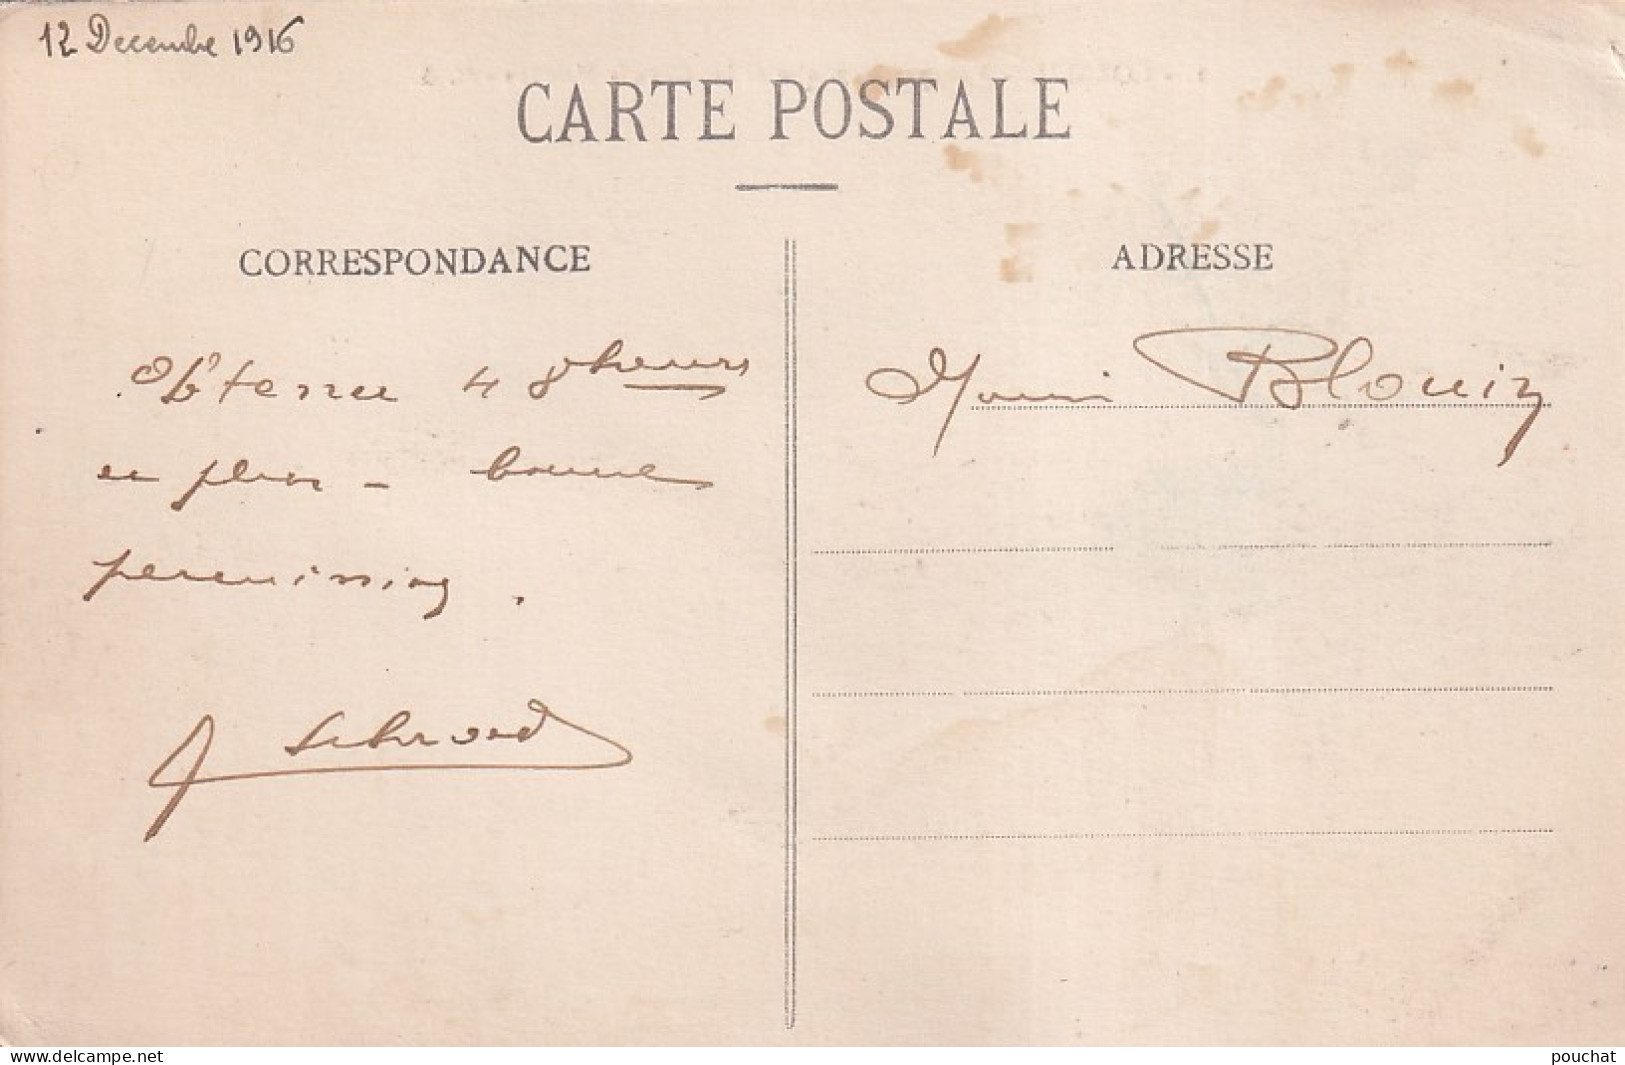 12 Decembre 1916
CARTE POSTALE
CORRESPONDANCE
ADRESSE
Obtenu 48 heures
en plus - bonne
permission.
Blouin
www.delcampe.net
pouchat